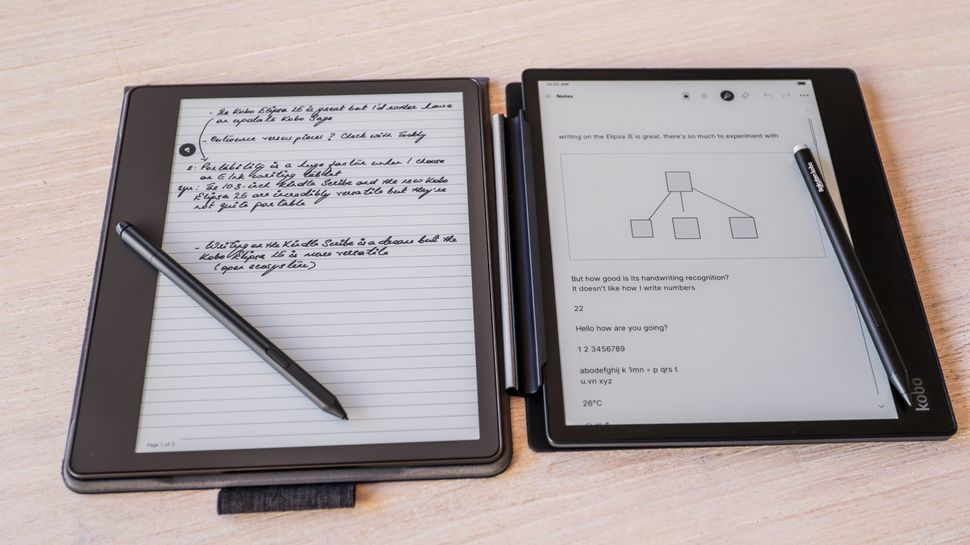 - The Kobo Elipsa 2E is great but I'd rather have
an update Kobo Sage
- Outsource versus pieces? Check with Toddy
Portability is a huge factor when I choose
an E Ink writing tablet
syn: The 10.3-inch Kindle Scribe and the new Kobo
Elipsa 2E are incredibly versatile but they're
not quite portable
- Writing on the Kindle Scribe is a dream but the
Kobo Elipsa 2E is more versatile
(open ecosystem)
Page 1 of 2
10:35 AM
Notes
writing on the Elipsa IE is great. there's so much to experiment with
But how good is its handwriting recognition?
It doesn't like how I write numbers
22
Hello how are you going?
1 2 3456789
abodefghij k 1mn ∘ p qrs t
u.vn xyz
26°C
Rakuten kobo
kobo